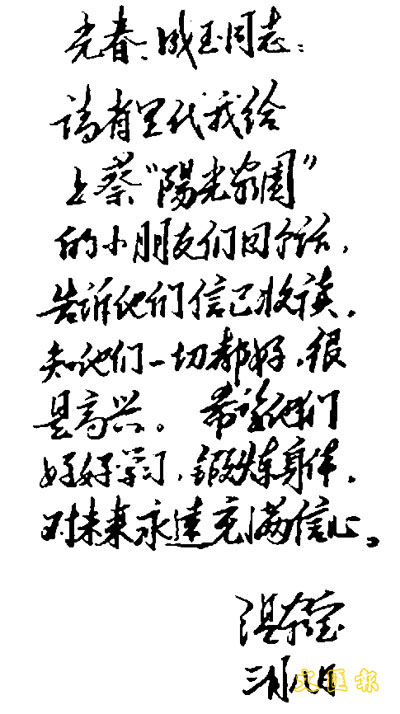 光春、成玉同志：
请省里代我给
上蔡“陽光家園”
的小朋友们回个话，
告诉他们信已收读，
知他们一切都好，很
是高兴。希望他们
好好学习，锻炼身体，
对未来永远充满信心。
温家宝
三月日
文匯报